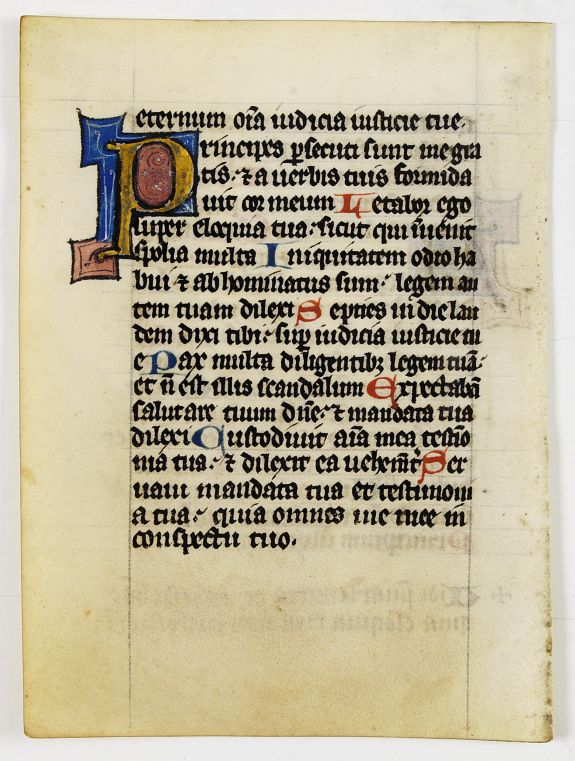 eternum oīa iudicia iusticie tue.
Principes ꝑsecuti sunt me gra
tis: ⁊ a uerbis tuis formida
uit cor meum Letabor ego
super eloquia tua: sicut qui īuenit
spolia multa Iniquitatem odio ha
bui ⁊ abhominatus sum: legem au
tem tuam dilexi Septies in die lau
dem dixi tibi: suꝑ iudicia iusticie tu
e Pax multa diligentibꝫ legem tuā:
et ñ est illis scandalum Expectabā
salutare tuum dñe: ⁊ mandata tua
dilexi Custodiuit aīa mea testio
nia tua: ⁊ dilexit ea uehemēt̾ Ser
uaui mandata tua et testimoni
a tua: quia omnes uie mee in
conspectu tuo.